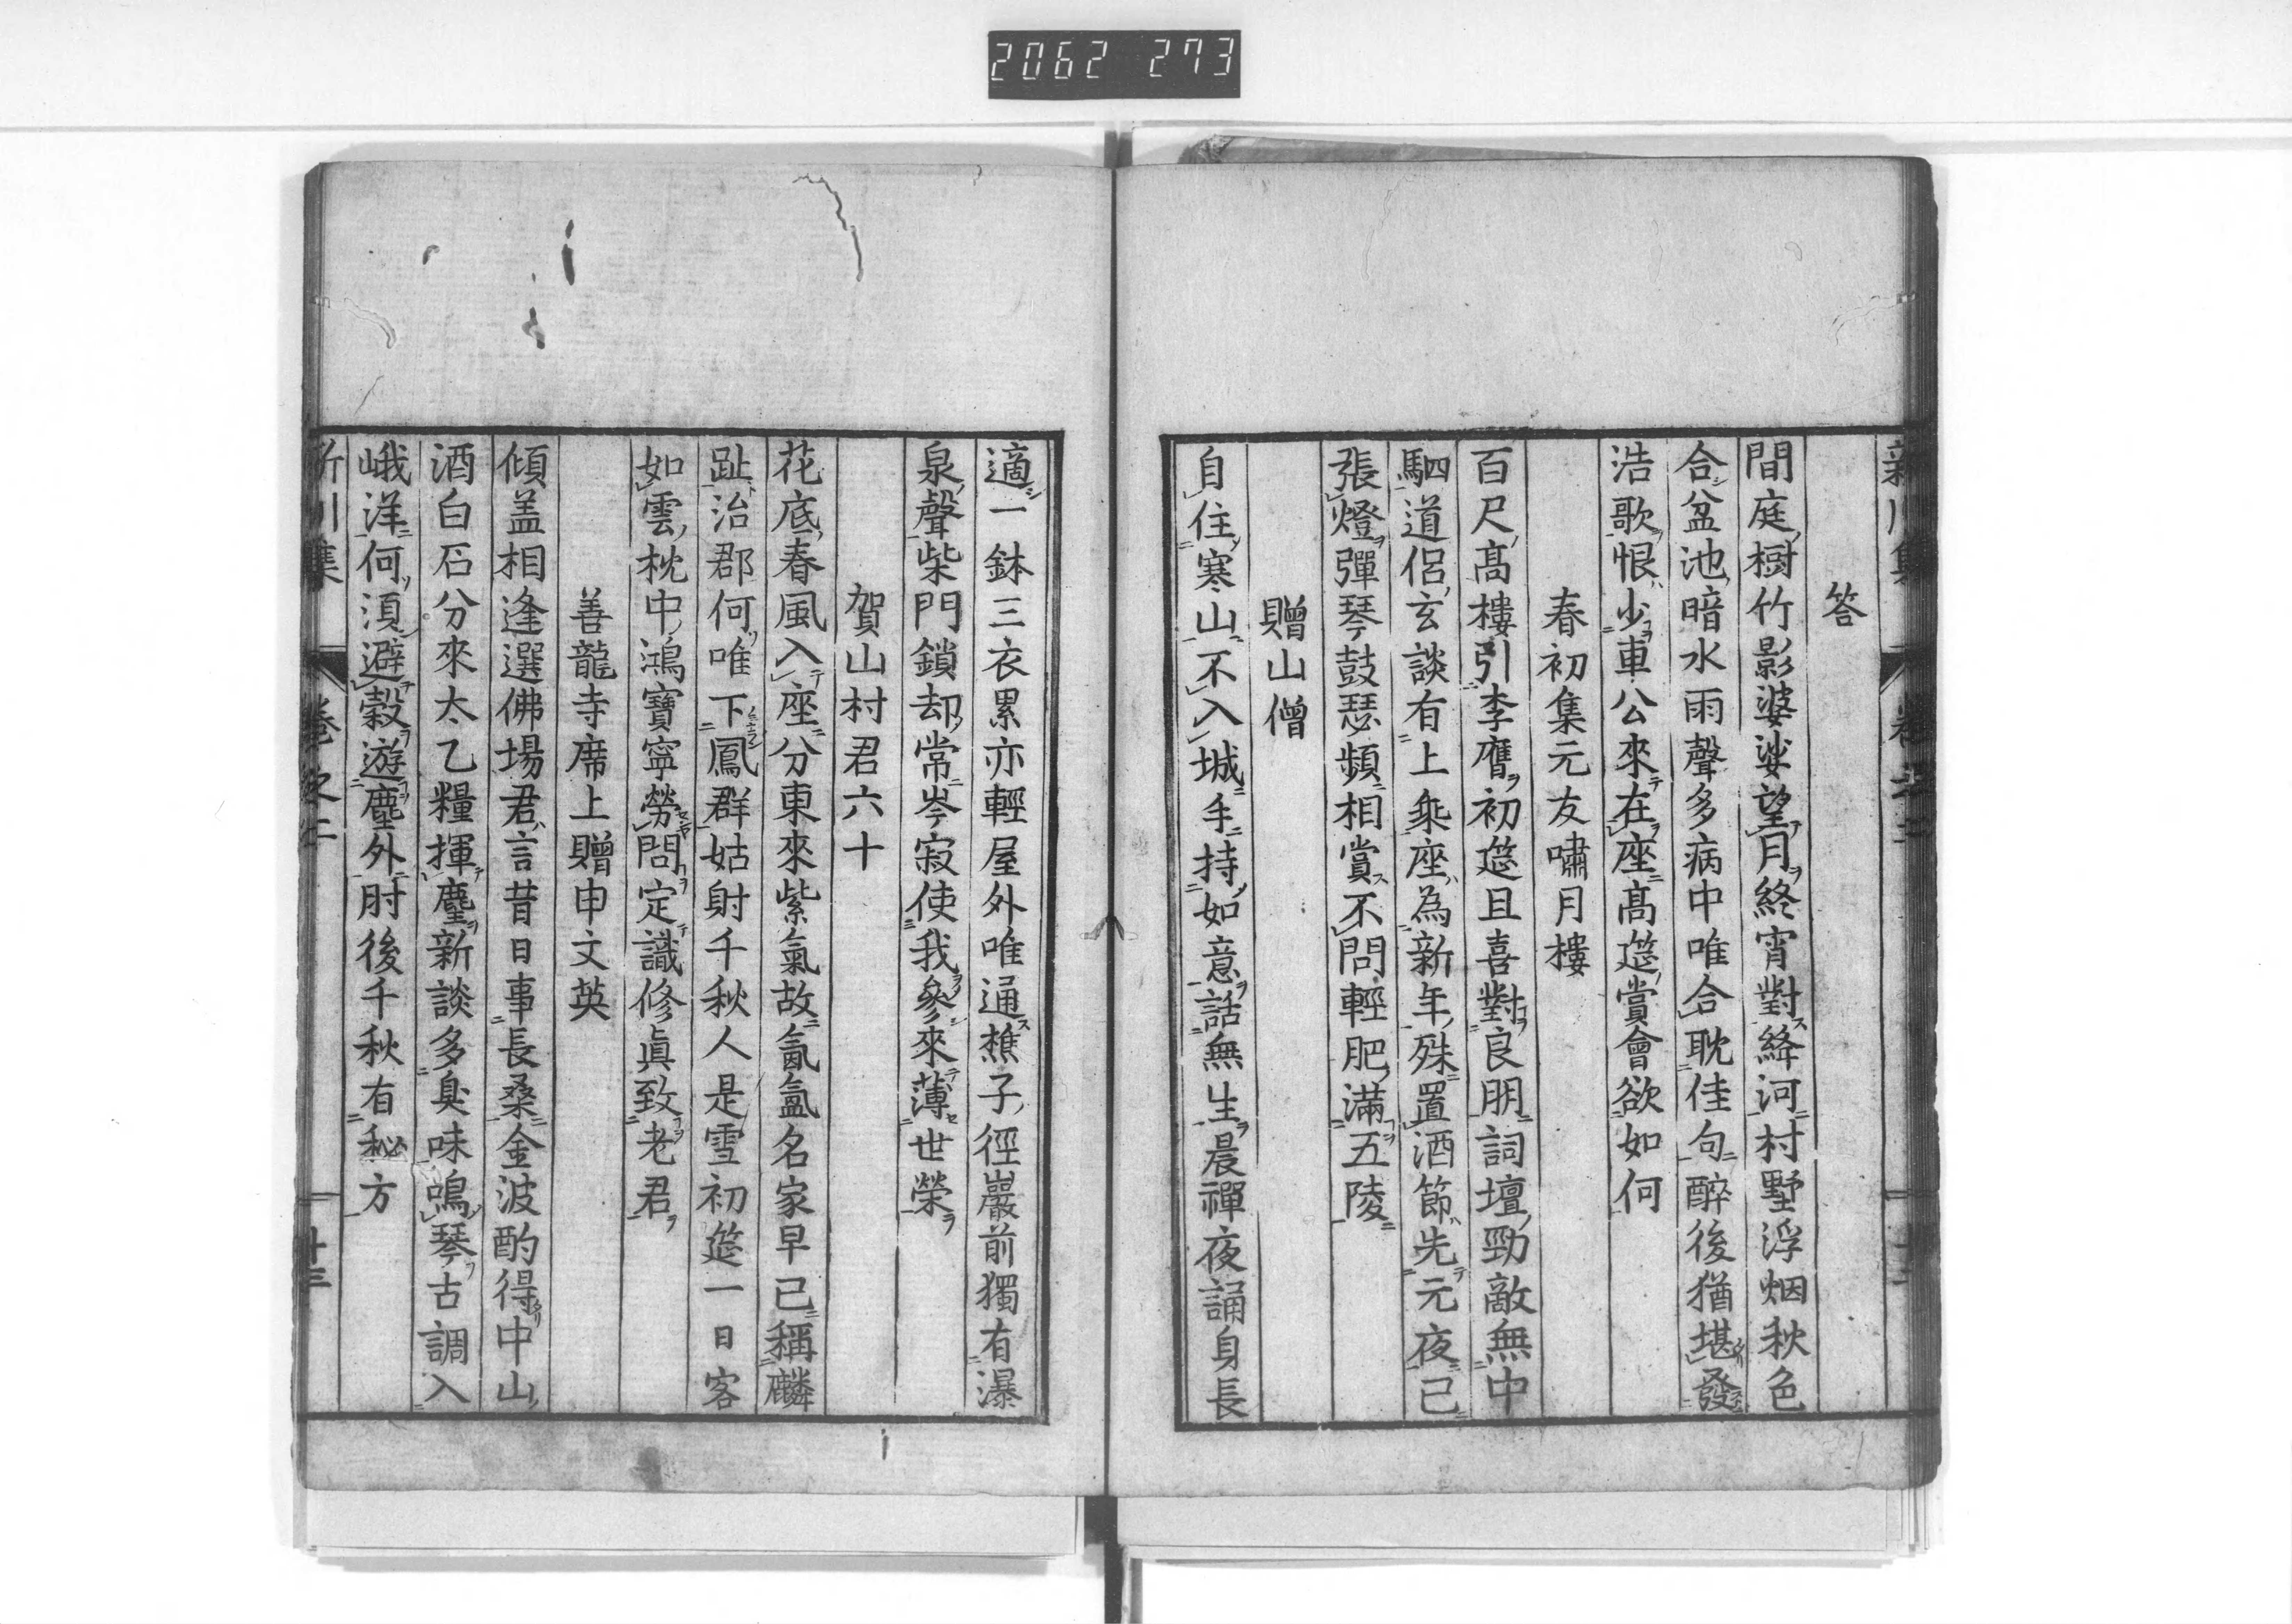 2062 273
答
間庭樹竹影婆娑望月終宵對絳河村墅浮烟秋色
合盆池暗水雨聲多病中唯合耽佳句醉後猶堪發
浩歌恨少車公來在座高筵賞會欲如何
春初集元友嘯月樓
百尺高樓引李膺初筵且喜對良朋詞壇勁敵無中
駟道侶玄談有上乘座為新年殊置酒節先元夜已
張燈彈琴鼓瑟頻相賞不問輕肥滿五陵
贈山僧
自住寒山不入城手持如意話無生晨禪夜誦身長
適一鉢三衣累亦輕屋外唯通樵子徑巖前獨有瀑
泉聲柴門鎖却常岑寂使我參來薄世榮
賀山村君六十
花底春風入座分東來紫氣故氤氳名家早已稱麟
趾治郡何唯下鳳群姑射千秋人是雪初筵一日客
如雲枕中鴻寶寧勞問定識修眞致老君
善龍寺席上贈申文英
傾盖相逢選佛場君言昔日事長桑金波酌得中山
酒白石分來太乙糧揮麈新談多臭味鳴琴古調入
峨洋何須避穀遊塵外肘後千秋有秘方
新川集 卷之二 十三